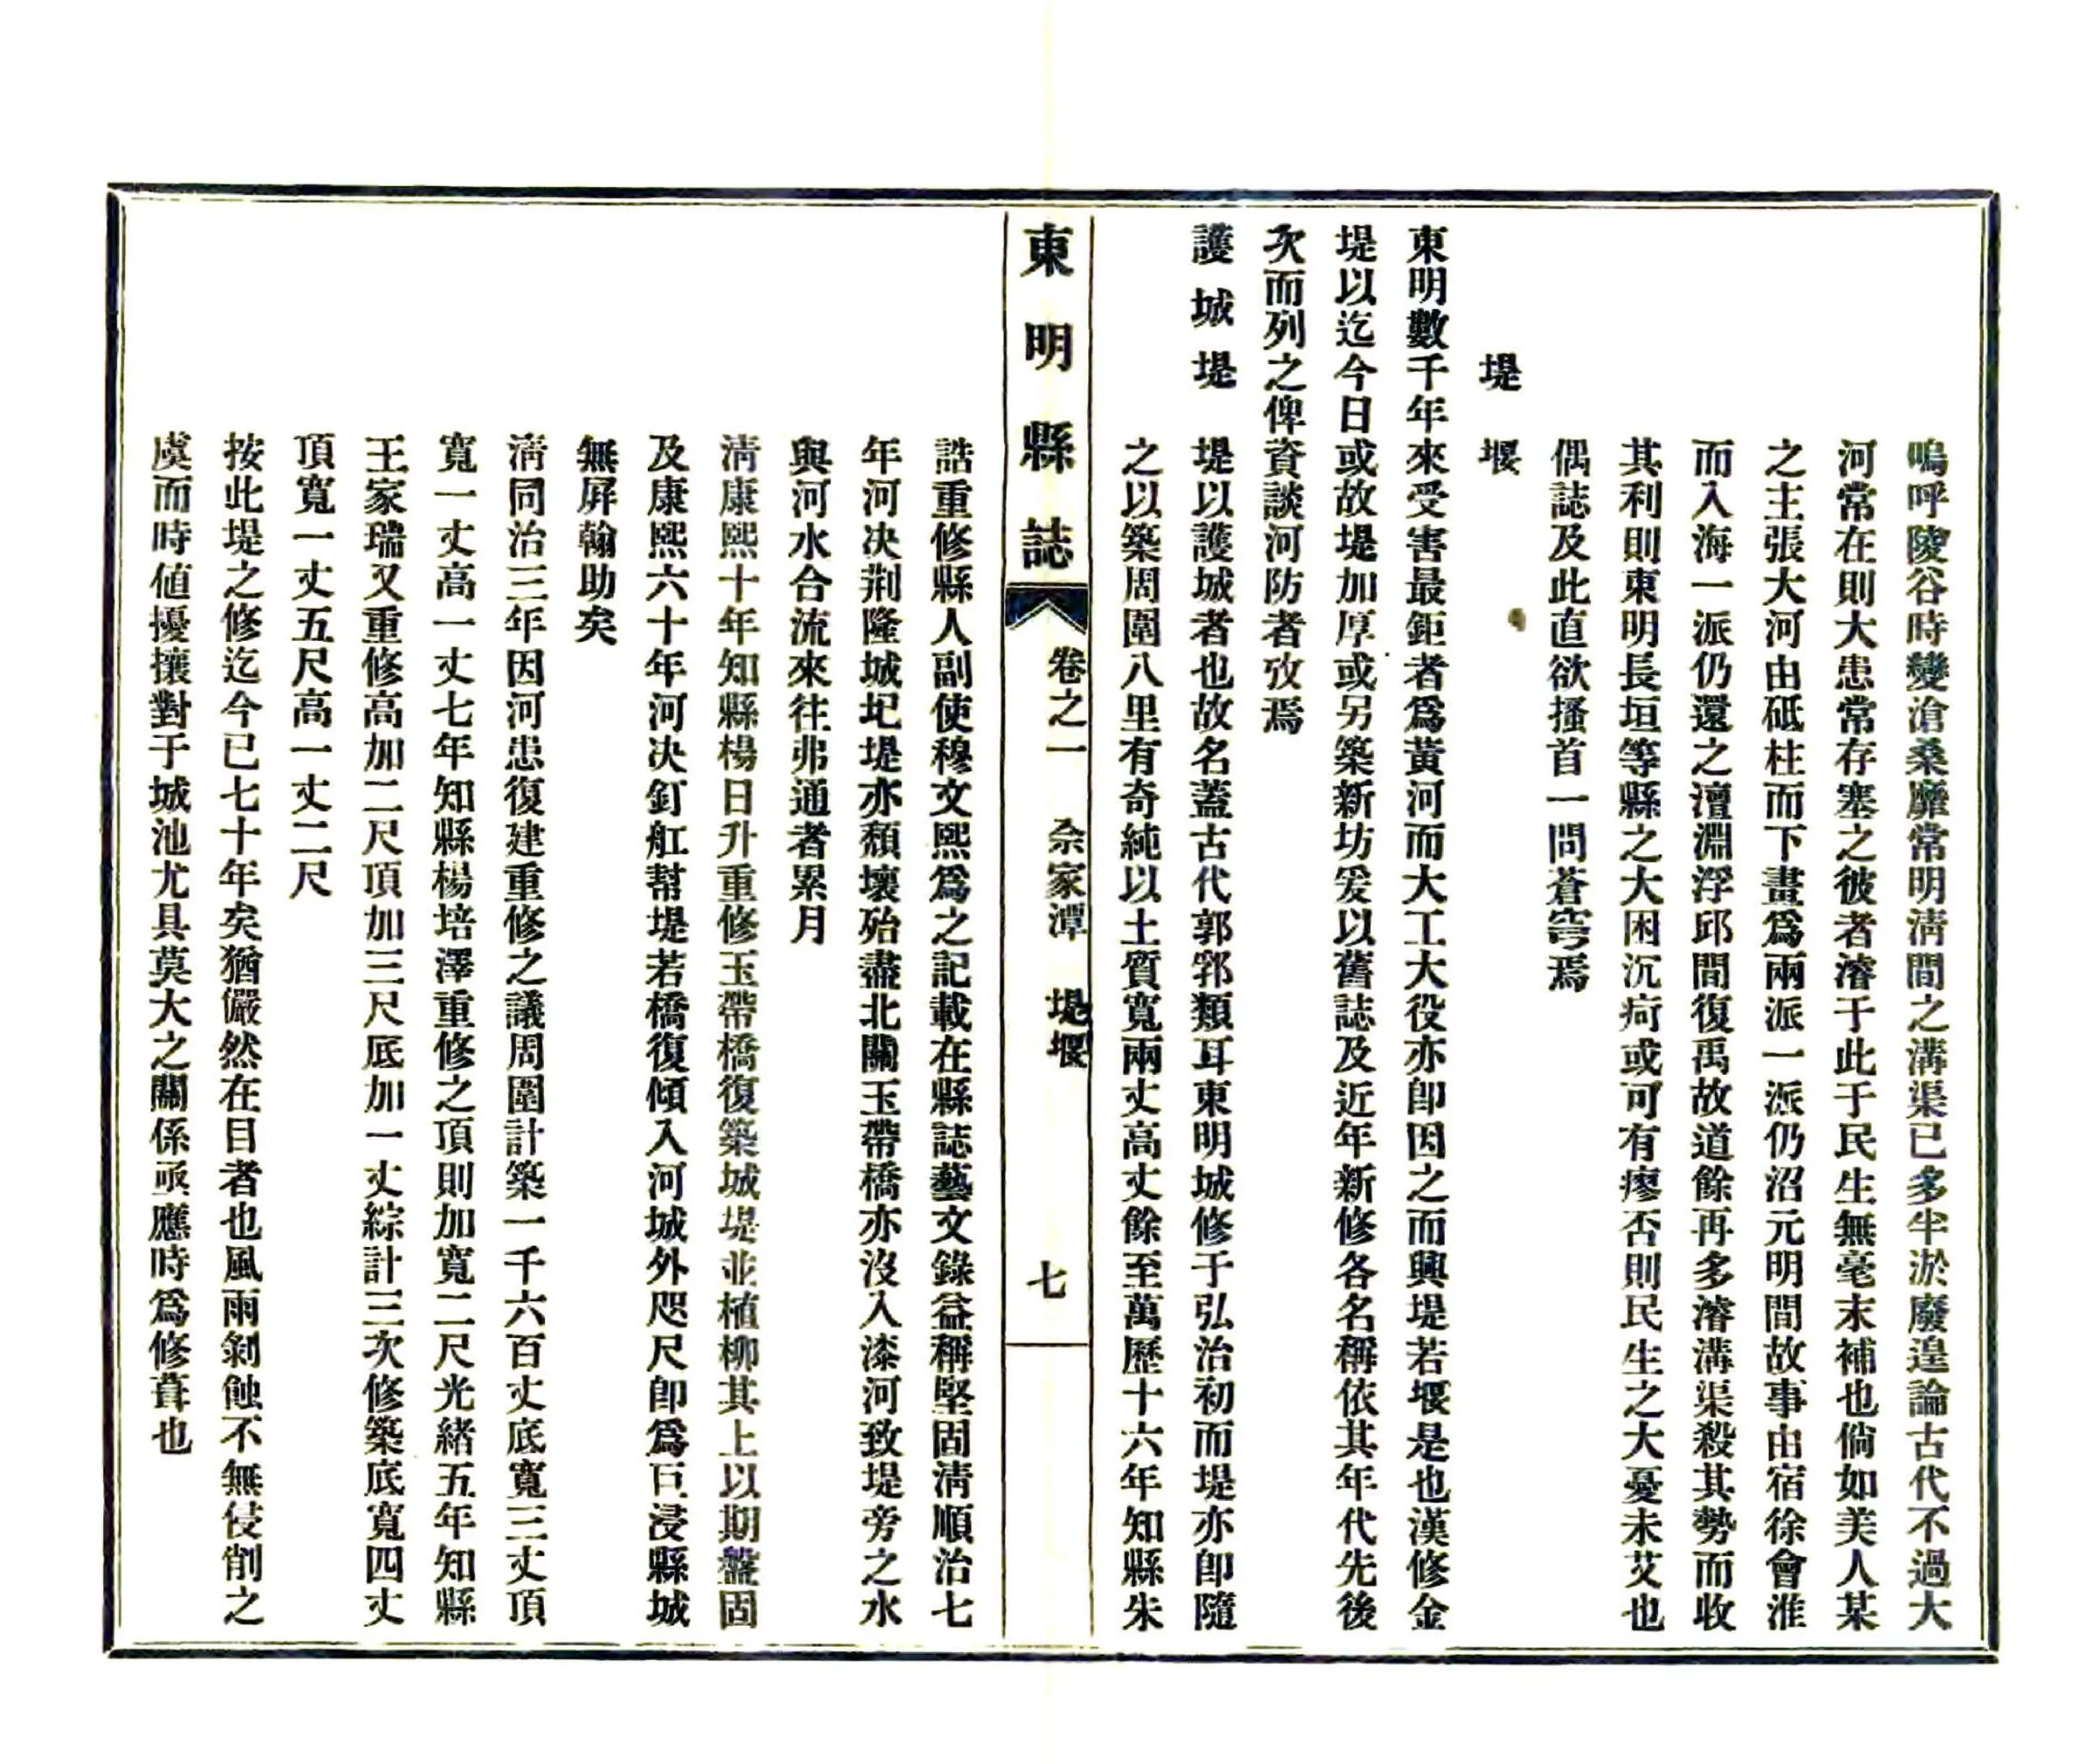 嗚呼陵谷時變滄桑靡常明淸間之溝渠已多半淤廢遑論古代不過大
河常在則大患常存塞之彼者濬于此于民生無毫末補也倘如美人某
之主張大河由砥柱而下畫爲兩派一派仍沼元明間故事由宿徐會淮
而入海一派仍還之澶淵浮邱間復禹故道餘再多濬溝渠殺其勢而收
其利則東明長垣等縣之大困沉疴或可有瘳否則民生之大憂未艾也
偶誌及此直欲搔首一問蒼穹焉
堤堰
東明數千年來受害最鉅者爲黃河而大工大役亦卽因之而興堤若堰是也漢修金
堤以迄今日或故堤加厚或另築新坊爰以舊誌及近年新修各名稱依其年代先後
次而列之俾資談河防者攷焉
護城堤 堤以護城者也故名蓋古代郭郛類耳東明城修于弘治初而堤亦卽隨
之以築周圍八里有奇純以土質寬兩丈高丈餘至萬歷十六年知縣朱
東明縣誌 卷之一 佘家潭 堤堰 七
誥重修縣人副使穆文熙爲之記載在縣誌藝文錄益稱堅固淸順治七
年河決荆隆城圮堤亦頹壞殆盡北關玉帶橋亦沒入漆河致堤旁之水
與河水合流來往弗通者累月
淸康熙十年知縣楊日升重修玉帶橋復築城堤並植柳其上以期盤固
及康熙六十年河決釘舡幇堤若橋復傾入河城外咫尺卽爲巨浸縣城
無屛翰助矣
淸同治三年因河患復建重修之議周圍計築一千六百丈底寬三丈頂
寬一丈高一丈七年知縣楊培澤重修之頂則加寬二尺光緒五年知縣
王家瑞又重修高加二尺頂加三尺底加一丈綜計三次修築底寬四丈
頂寬一丈五尺高一丈二尺
按此堤之修迄今已七十年矣猶儼然在目者也風雨剝蝕不無侵削之
虞而時値擾攘對于城池尤具莫大之關係亟應時爲修葺也